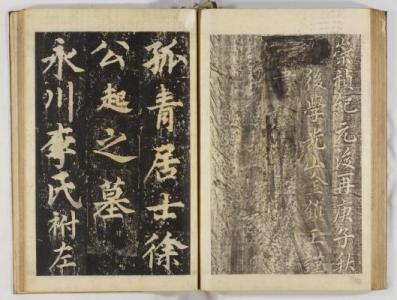 崇禎紀元後再庚子秋
後學光山金鎮玉謹
孤青居士徐
公起之墓
永川李氏祔左